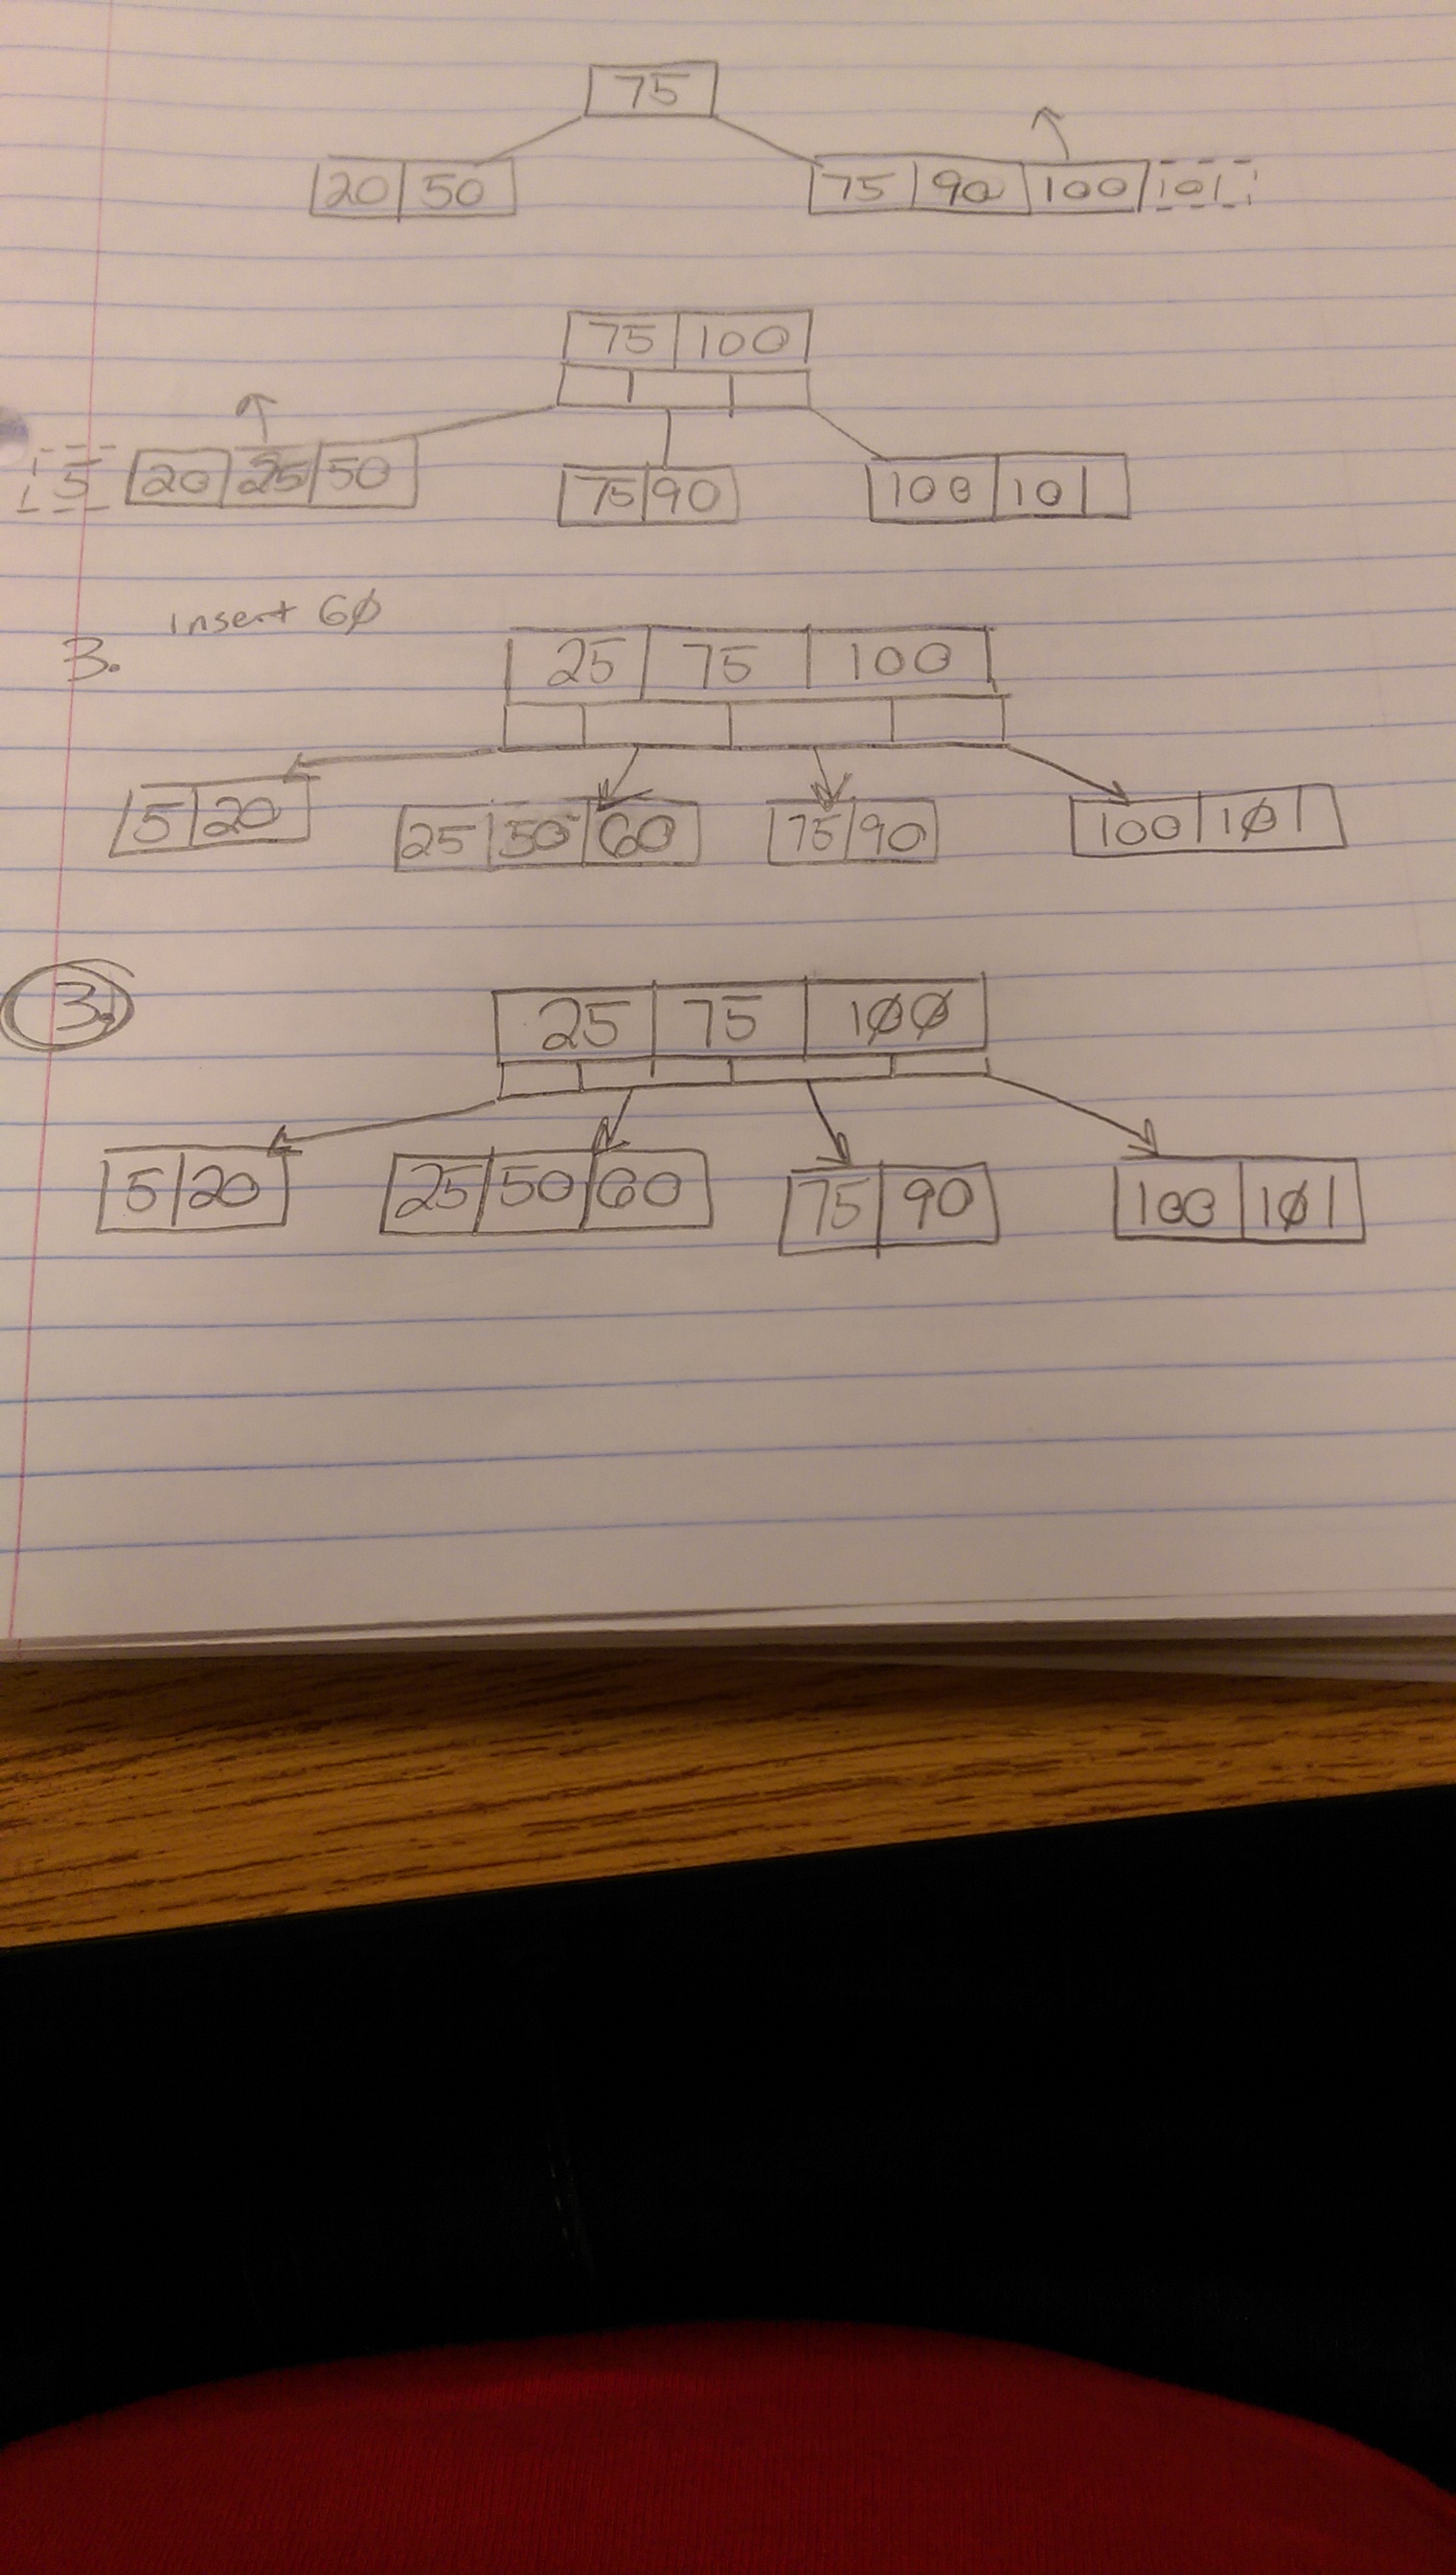 75
20 50 75 90 100 101
75 100
5 20 25 50 75 90 100 101
insert 60
3. 25 75 100
5 20 25 50 60 75 90 100 101
3. 25 75 100
5 20 25 50 60 75 90 100 101